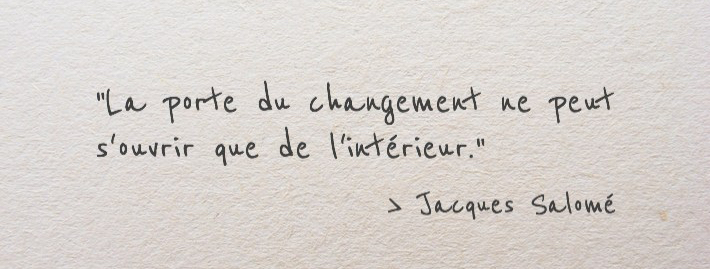 "La porte du changement ne peut
s'ouvrir que de l'intérieur."
> Jacques Salomé